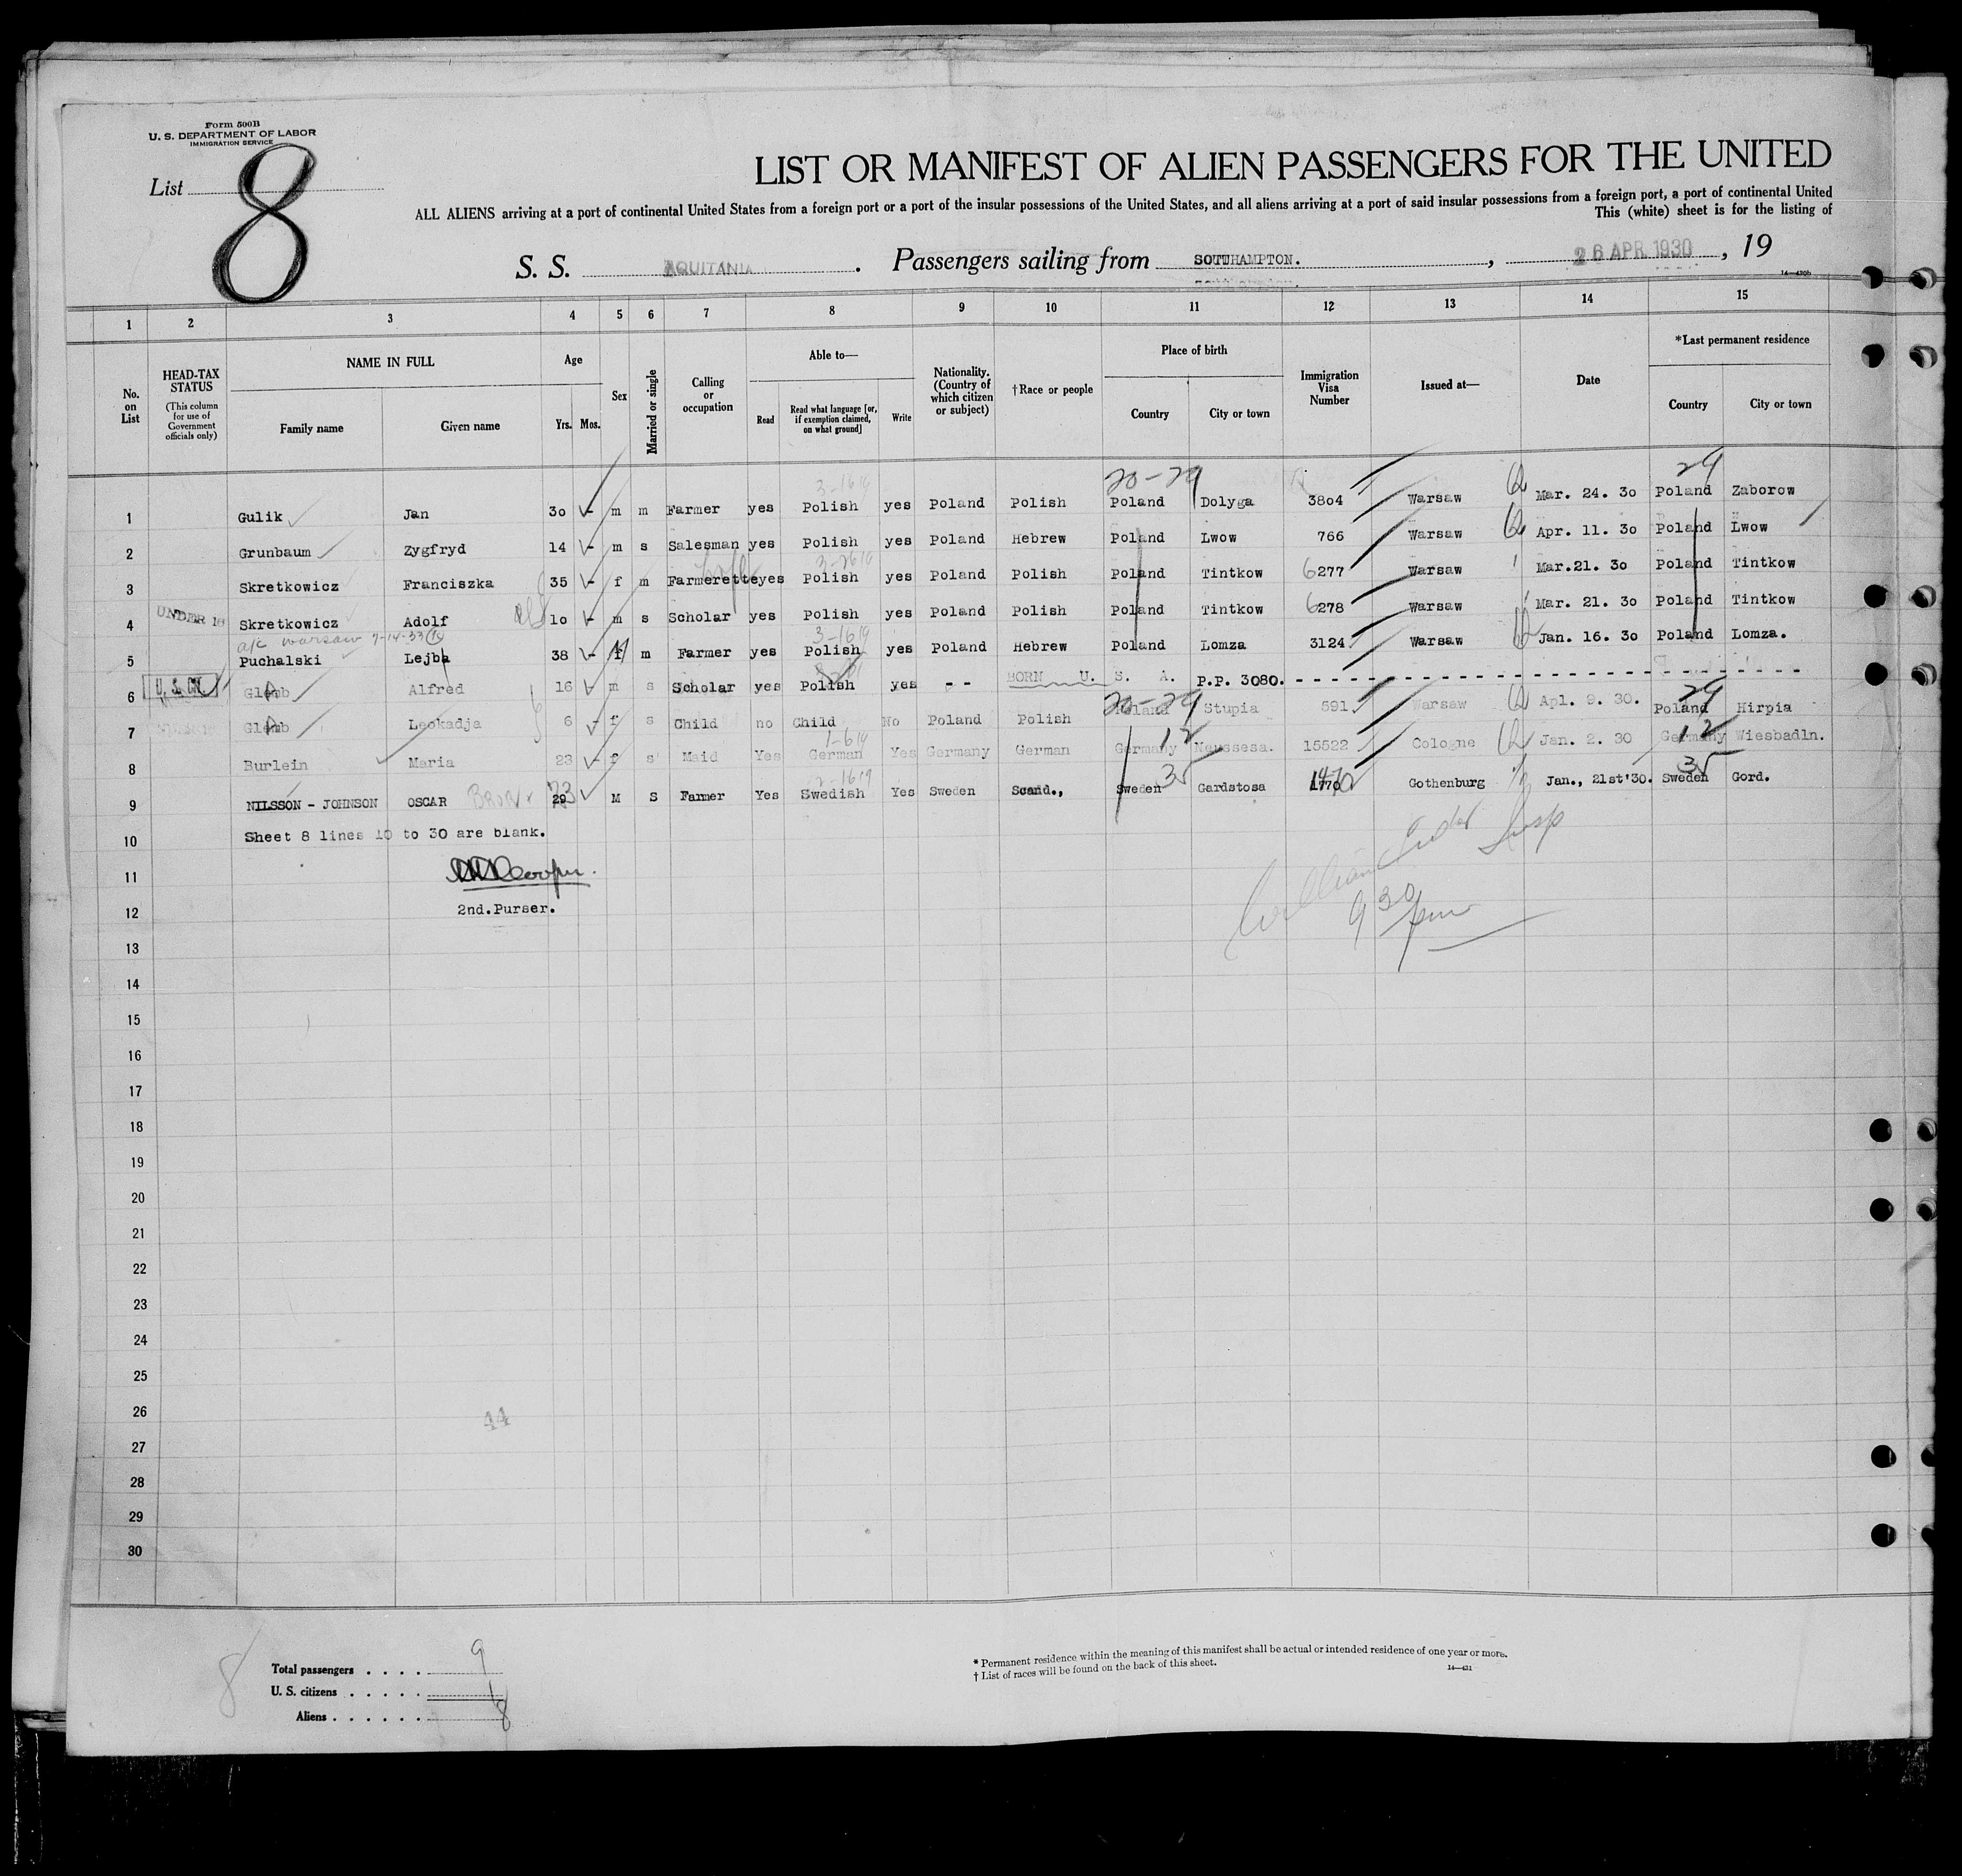 Form 500B
U. S. DEPARTMENT OF LABOR
IMMIGRATION SERVICE
List 8
LIST OR MANIFEST OF ALIEN PASSENGERS FOR THE UNITED
ALL ALIENS arriving at a port of continental United States from a foreign port or a port of the insular possessions of the United States, and all aliens arriving at a port of said insular possessions from a foreign port, a port of continental United
This (white) sheet is for the listing of
S. S. AQUITANIA. Passengers sailing from SOUTHAMPTON., 26 APR 1930, 19
14—430b
1 2 3 4 5 6 7 8 9 10 11 12 13 14 15
No. on List
HEAD-TAX STATUS (This column for use of Government officials only)
NAME IN FULL Family name Given name
Age Yrs. Mos.
Sex
Married or single
Calling or occupation
Able to— Read Read what language [or, if exemption claimed, on what ground] Write
Nationality. (Country of which citizen or subject)
†Race or people
Place of birth Country City or town
Immigration Visa Number
Issued at—
Date
*Last permanent residence Country City or town
3-1614 20-29 29
1 Gulik Jan 30 - m m Farmer yes Polish yes Poland Polish Poland Dolyga 3804 Warsaw Mar. 24. 30 Poland Zaborow
2 Grunbaum Zygfryd 14 - m s Salesman yes Polish yes Poland Hebrew Poland Lwow 766 Warsaw Apr. 11. 30 Poland Lwow
3 Skretkowicz Franciszka 35 - f m Farmerette yes Polish yes Poland Polish Poland Tintkow 6277 Warsaw Mar.21. 30 Poland Tintkow
4 UNDER 16 Skretkowicz Adolf 10 - m s Scholar yes Polish yes Poland Polish Poland Tintkow 6278 Warsaw Mar. 21. 30 Poland Tintkow
a/c Warsaw 7-14-33
5 Puchalski Lejba 38 - m Farmer yes Polish yes Poland Hebrew Poland Lomza 3124 Warsaw Jan. 16. 30 Poland Lomza.
6 Alfred 16 - m s Scholar yes Polish yes - - BORN U. S. A. P.P. 3080. - - - - - - - - - -
20-29 29
7 Leokadja 6 - f s Child no Child No Poland Polish Poland Stupia 591 Warsaw Apl. 9. 30. Poland Hirpia
12 12
8 Burlein Maria 23 - f s Maid Yes German Yes Germany German Germany Neussesa. 15522 Cologne Jan. 2. 30 Germany Wiesbadln.
35 35
9 NILSSON - JOHNSON OSCAR 29 M S Farmer Yes Swedish Yes Sweden Scand., Sweden Gardstosa Gothenburg Jan., 21st'30. Sweden Gord.
10 Sheet 8 lines 10 to 30 are blank.
11 Cooper.
12 2nd.Purser.
William
9 30
13
14
15
16
17
18
19
20
21
22
23
24
25
26
44
27
28
29
30
8
Total passengers . . . . 9
U. S. citizens . . . . . 1
Aliens . . . . . . 8
* Permanent residence within the meaning of this manifest shall be actual or intended residence of one year or more.
† List of races will be found on the back of this sheet.
14—431